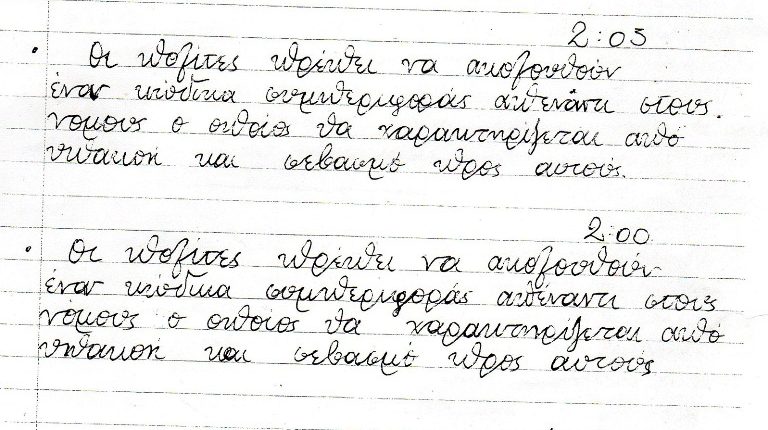 2:05
• Οι πολίτες πρέπει να ακολουθούν
έναν κώδικα συμπεριφοράς απέναντι στους.
νόμους ο οποίος θα χαρακτηρίζεται από
υπακοή και σεβασμό προς αυτούς.
2:00
• Οι πολίτες πρέπει να ακολουθούν
έναν κώδικα συμπεριφοράς απέναντι στους
νόμους ο οποίος θα χαρακτηρίζεται από
υπακοή και σεβασμό προς αυτούς